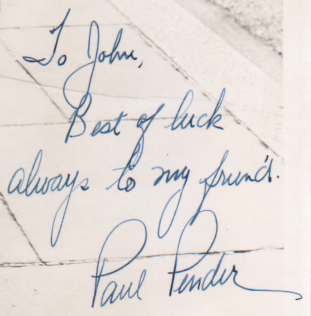 To John,
Best of luck
always to my friend.
Paul Pender